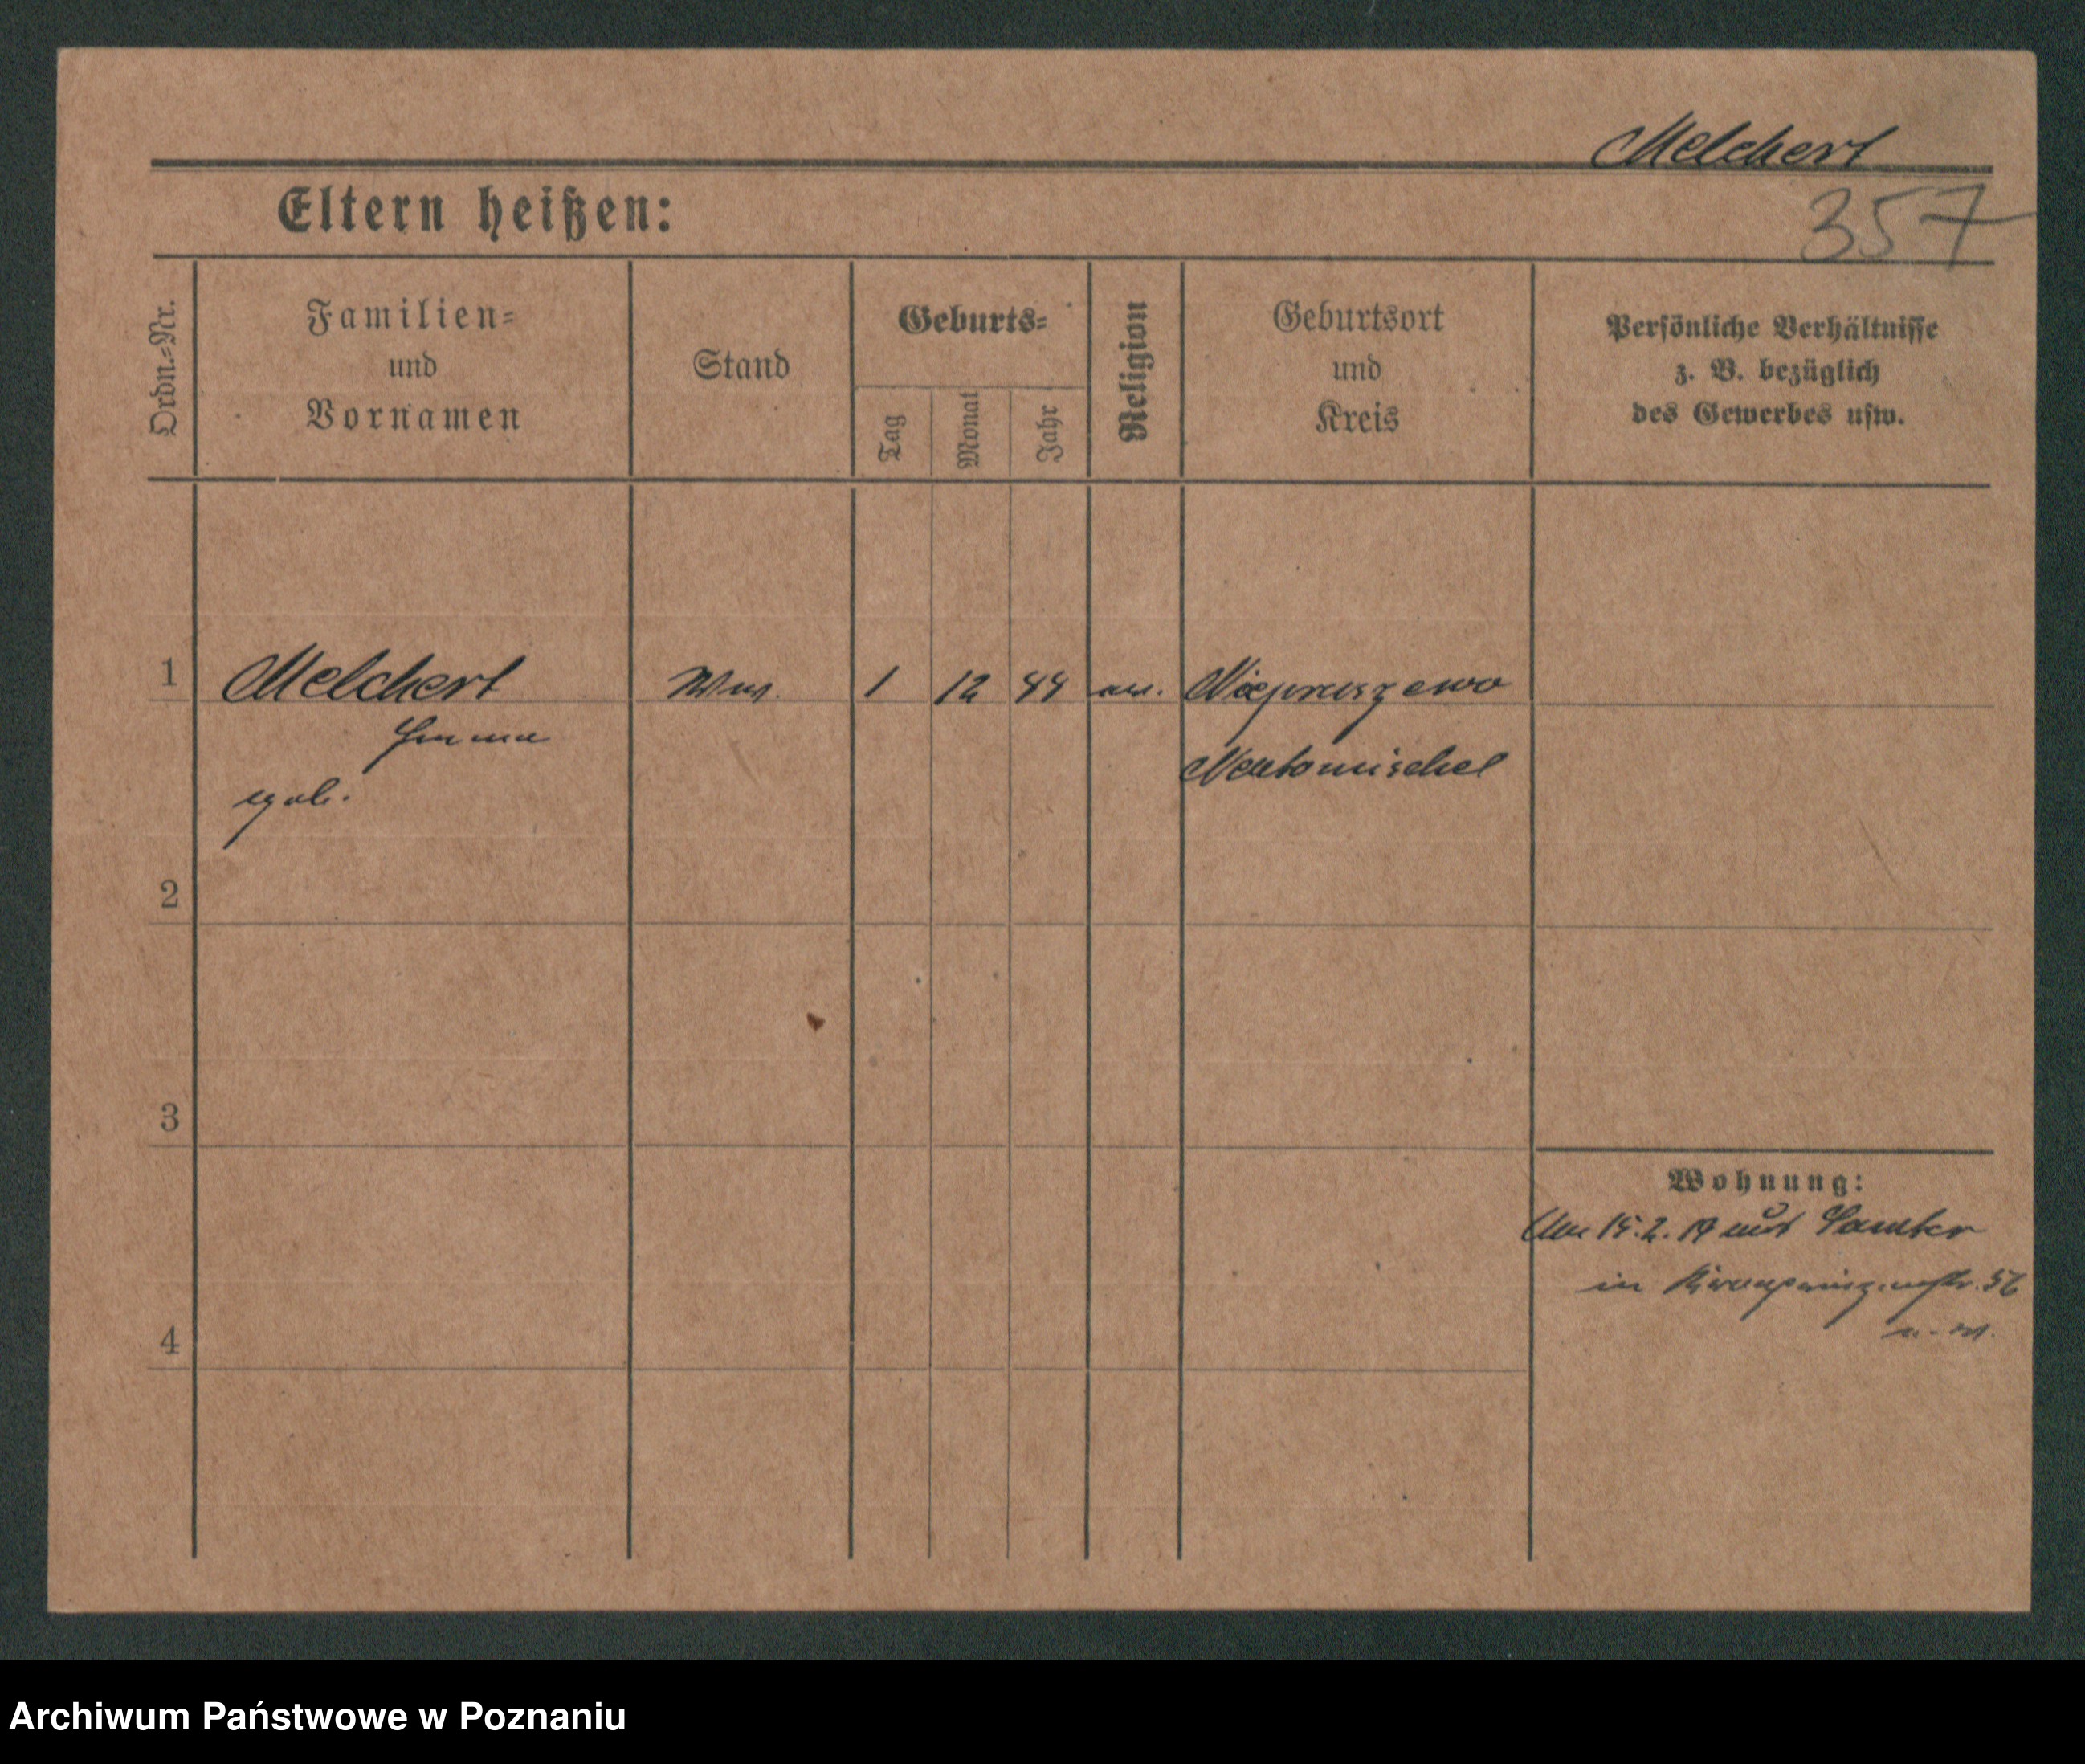 Melchert
357
Eltern heißen:
Ordn.=Nr.
Familien=
und
Vornamen
Stand
Geburts=
Tag
Monat
Jahr
Religion
Geburtsort
und
Kreis
Persönliche Verhältnisse
z. B. bezüglich
des Gewerbes usw.
1
Melchert
Emma
Ww.
1
12
44
ev.
Niepruszewo
Neutomischel
geb.
2
3
4
Wohnung:
Am 15.2.19 aus Samter
in Kronprinzenstr. 56
Archiwum Państwowe w Poznaniu